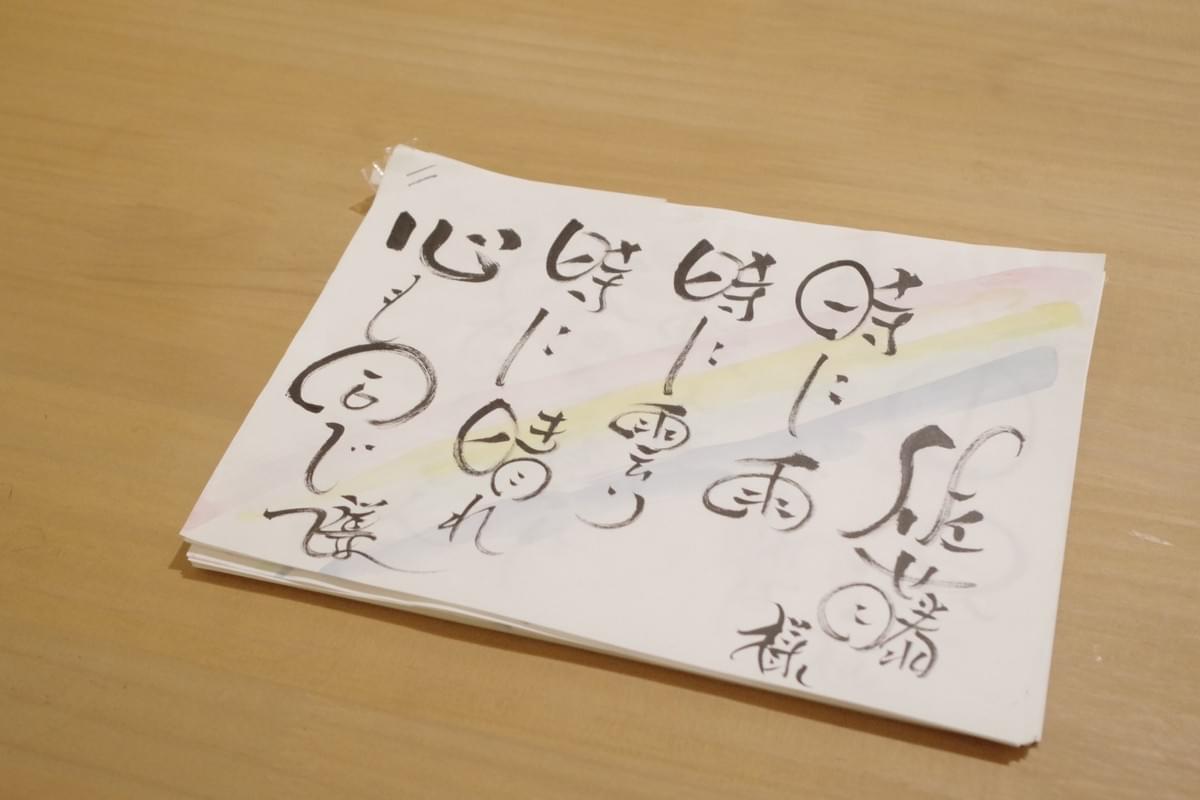 佐藤様
時に雨
時に雲り
時に晴れ
心も同じ様